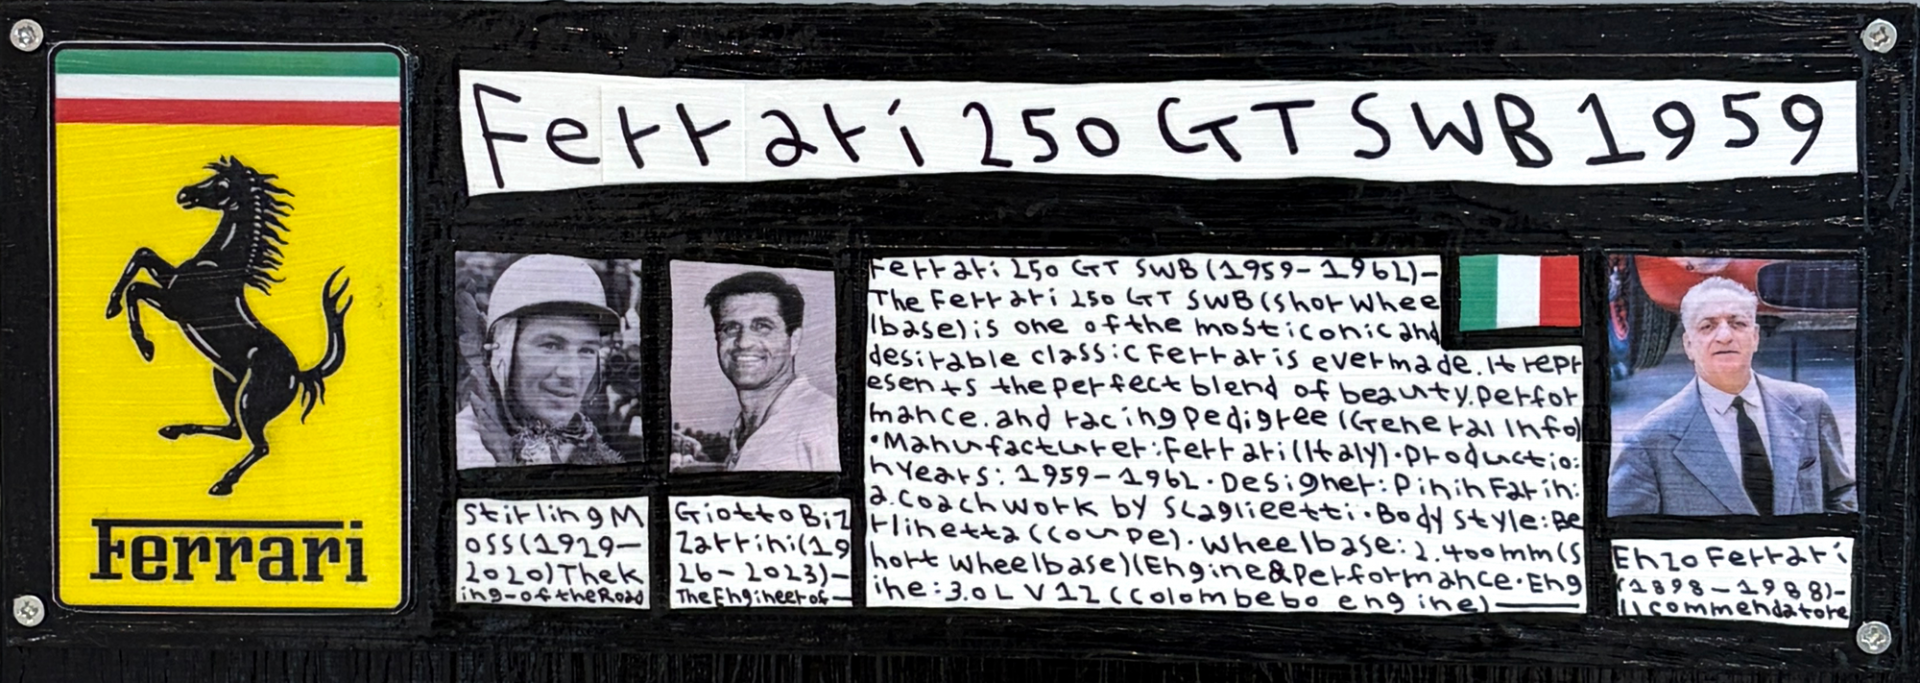 Ferrari
Ferrari 250 GT SWB 1959
Stirling M
oss(1929-
2020)The K
ing-of the Road
Giotto Biz
zarrini(19
26-2023)-
The Engineer of-
Ferrari 250 GT SWB (1959-1962)-
The Ferrari 250 GT SWB (Shor Whee
lbase) is one of the most iconic and
desirable classic Ferraris ever made. It repr
esents the perfect blend of beauty, perfor
mance. and racing pedigree (General Info)
•Manufacturer: Ferrari (Italy)•Productio:
n Years: 1959-1962•Designer: Pininfarin:
a. coachwork by Scaglieetti•Body Style: Be
rlinetta (coupe)•Wheelbase: 2.400mm (S
hort Wheelbase) (Engine & Performance•Eng
ine: 3.0L V12 (Colombebo engine)-
Enzo Ferrari
(1898-1988)-
Il commendatore